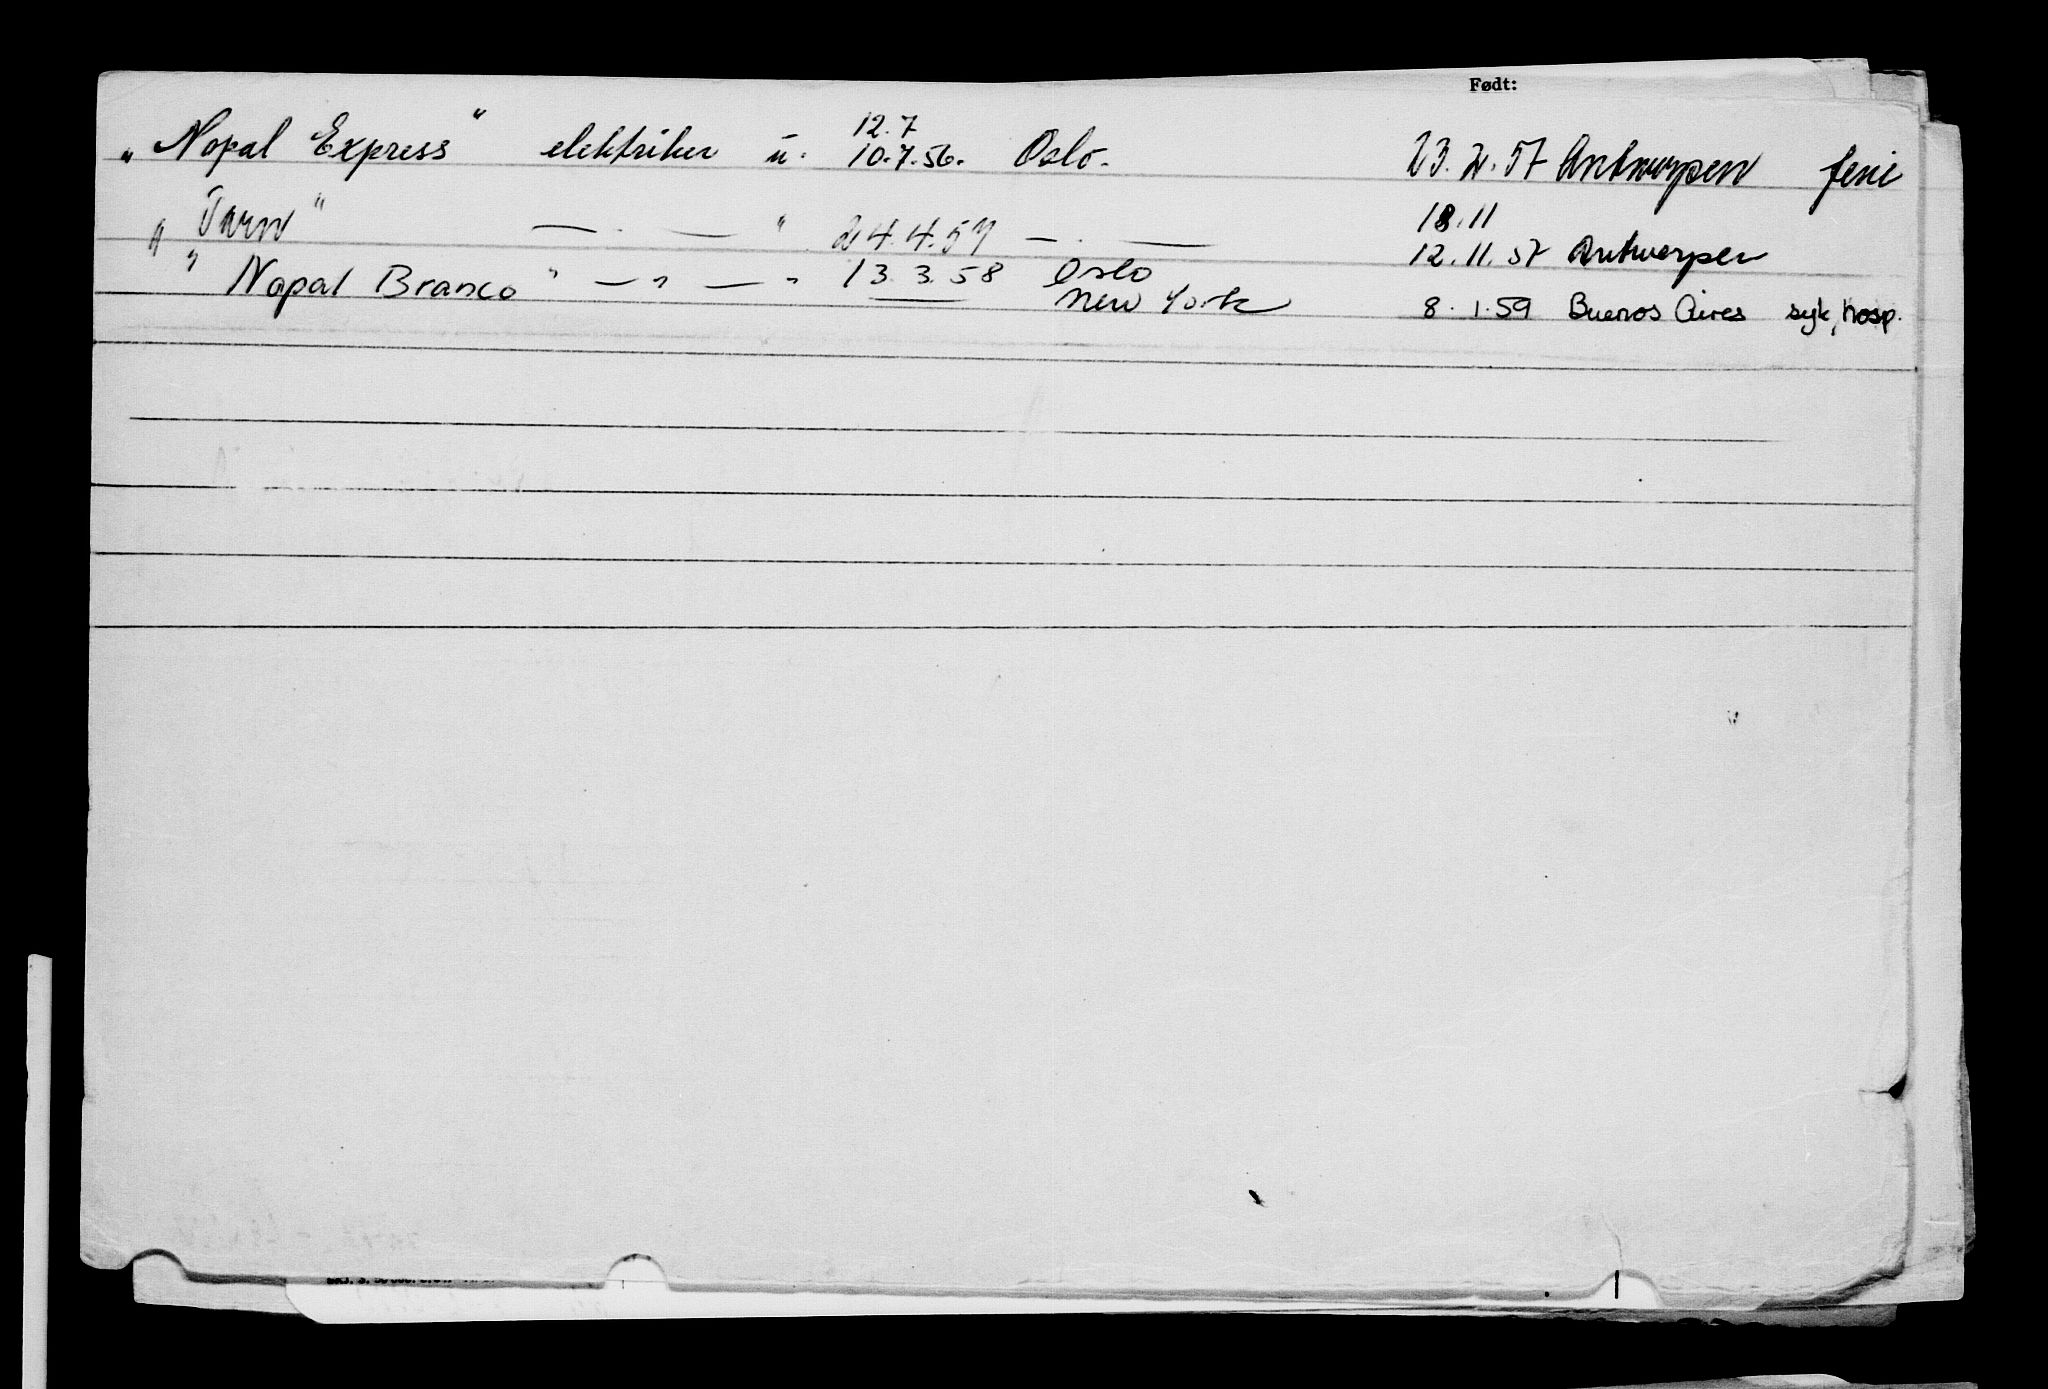 Født:
12.7
„Nopal Express" elektriker u. 10.7.56. Oslo. 23.2.57 Antwerpen ferie
18.11
„Tarn" — . — " 24.4.57 — . — 12.11.57 Antwerpen
" Nopal Branco " — " — " 13.3.58 Oslo
— New York 8.1.59 Buenos Aires syk, hosp.